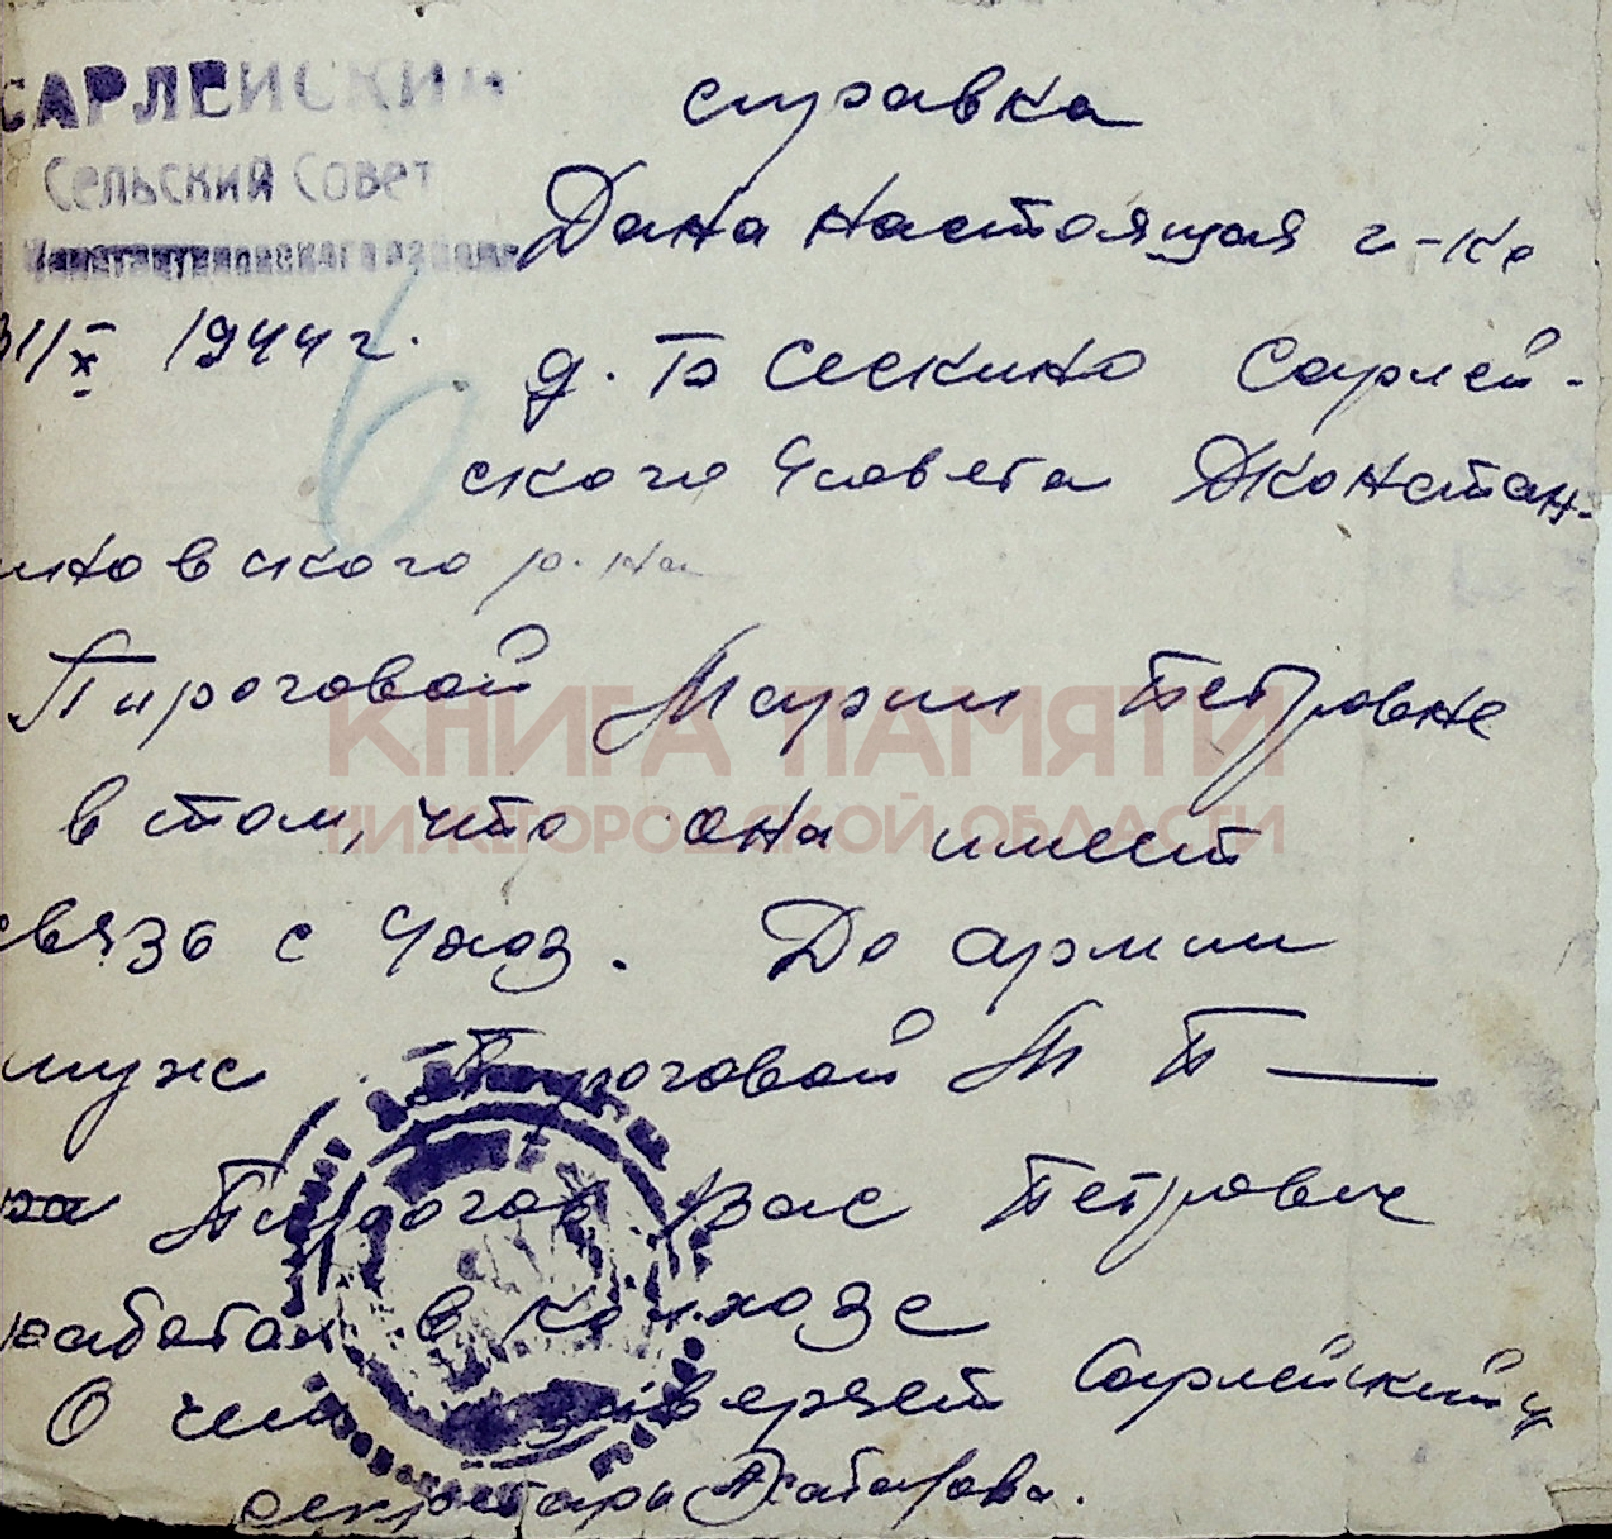 САРЛЕЙСКИЙ
Сельский Совет
Константиновского района
31/X 1944 г.
справка
Дана настоящая г-ке
д. Б Сескино Сарлей-
ского с/совета Дконстан-
иновского р-на
Пироговой Марии Петровне
в том, что она имеет
связь с
До армии
муж Пироговой М П —
Пирогов Вас Петрович
работал в колхозе
О чем заверяет Сарлейский
секретарь
КНИГА ПАМЯТИ
НИЖЕГОРОДСКОЙ ОБЛАСТИ